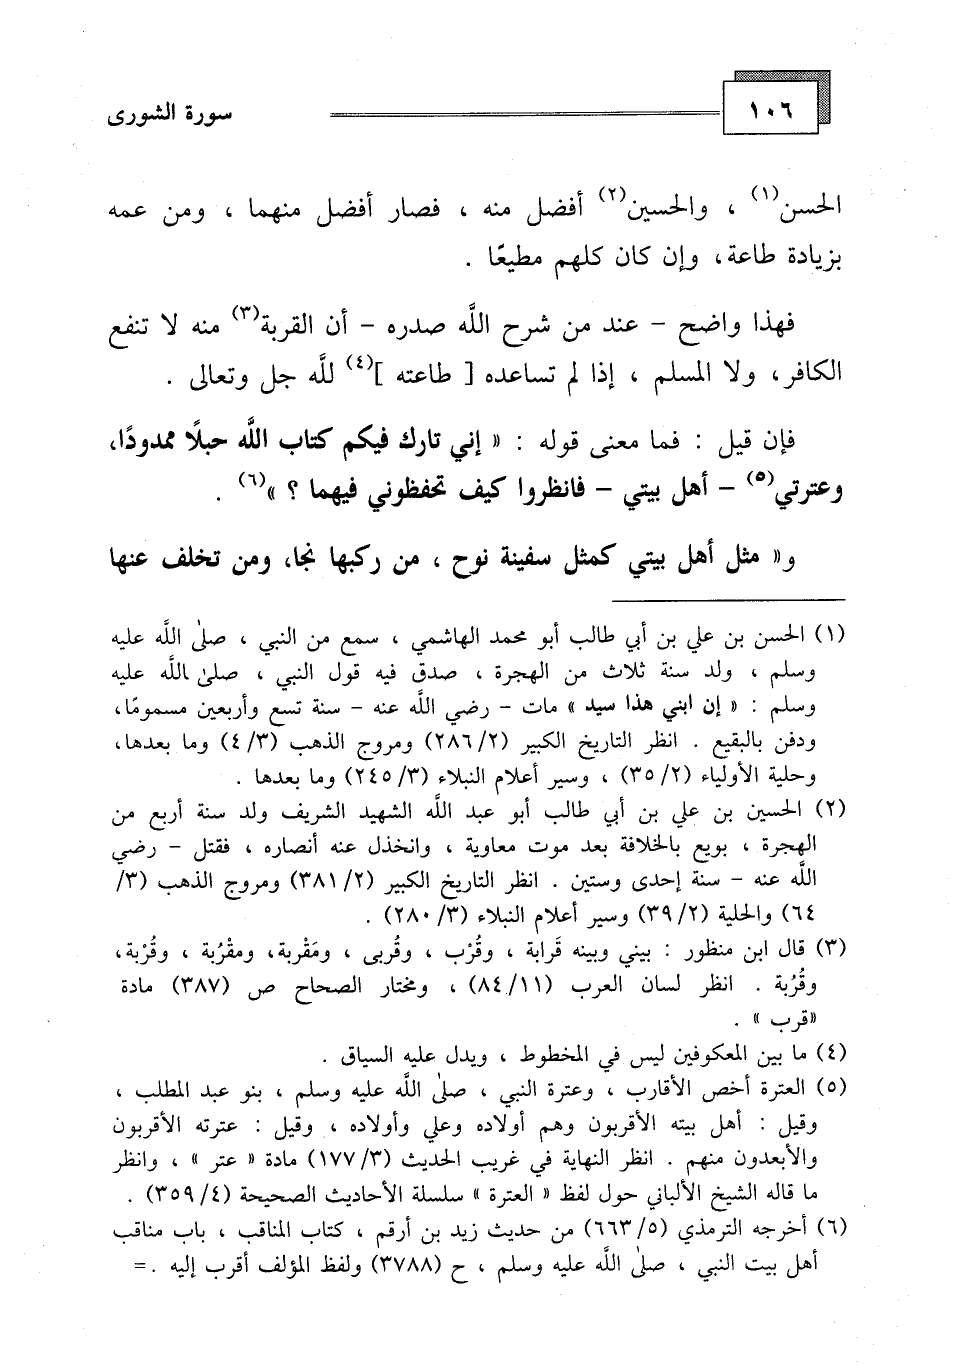 ١٠٦
سورة الشورى
الحسن(١) ، والحسين(٢) أفضل منه ، فصار أفضل منهما ، ومن عمه
بزيادة طاعة، وإن كان كلهم مطيعًا .
فهذا واضح – عند من شرح اللَّه صدره – أن القربة(٣) منه لا تنفع
الكافر، ولا المسلم ، إذا لم تساعده [ طاعته ](٤) للَّه جل وتعالى .
فإن قيل : فما معنى قوله : « إني تارك فيكم كتاب اللَّه حبلًا ممدودًا،
وعترتي(٥) – أهل بيتي – فانظروا كيف تحفظوني فيهما ؟ »(٦) .
و« مثل أهل بيتي كمثل سفينة نوح ، من ركبها نجا، ومن تخلف عنها
(١) الحسن بن علي بن أبي طالب أبو محمد الهاشمي ، سمع من النبي ، صلىٰ اللَّه عليه
وسلم ، ولد سنة ثلاث من الهجرة ، صدق فيه قول النبي ، صلىٰ اللَّه عليه
وسلم : « إن ابني هذا سيد » مات – رضي اللَّه عنه – سنة تسع وأربعين مسمومًا،
ودفن بالبقيع . انظر التاريخ الكبير (٢/ ٢٨٦) ومروج الذهب (٣/ ٤) وما بعدها،
وحلية الأولياء (٢/ ٣٥) ، وسير أعلام النبلاء (٣/ ٢٤٥) وما بعدها .
(٢) الحسين بن علي بن أبي طالب أبو عبد اللَّه الشهيد الشريف ولد سنة أربع من
الهجرة ، بويع بالخلافة بعد موت معاوية ، وانخذل عنه أنصاره ، فقتل – رضي
اللَّه عنه – سنة إحدى وستين . انظر التاريخ الكبير (٢/ ٣٨١) ومروج الذهب (٣/
٦٤) والحلية (٢/ ٣٩) وسير أعلام النبلاء (٣/ ٢٨٠) .
(٣) قال ابن منظور : بيني وبينه قَرابة ، وقُرْب ، وقُربى ، ومَقْربة، ومقْرُبة ، وقُرْبة،
وقُرُبة . انظر لسان العرب (١١/ ٨٤) ، ومختار الصحاح ص (٣٨٧) مادة
«قرب » .
(٤) ما بين المعكوفين ليس في المخطوط ، ويدل عليه السياق .
(٥) العترة أخص الأقارب ، وعترة النبي ، صلىٰ اللَّه عليه وسلم ، بنو عبد المطلب ،
وقيل : أهل بيته الأقربون وهم أولاده وعلي وأولاده ، وقيل : عترته الأقربون
والأبعدون منهم . انظر النهاية في غريب الحديث (٣/ ١٧٧) مادة « عتر » ، وانظر
ما قاله الشيخ الألباني حول لفظ « العترة » سلسلة الأحاديث الصحيحة (٤/ ٣٥٩) .
(٦) أخرجه الترمذي (٥/ ٦٦٣) من حديث زيد بن أرقم ، كتاب المناقب ، باب مناقب
أهل بيت النبي ، صلىٰ اللَّه عليه وسلم ، ح (٣٧٨٨) ولفظ المؤلف أقرب إليه .=